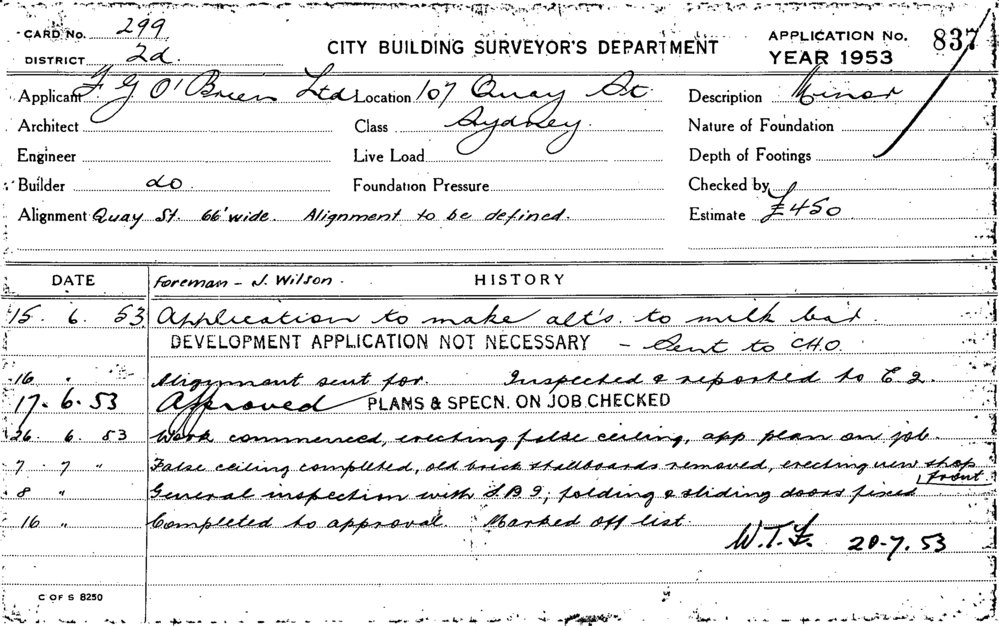 CARD No. 299
DISTRICT 2d
CITY BUILDING SURVEYOR'S DEPARTMENT
APPLICATION No. 837
YEAR 1953
Applicant F G O'Brien Ltd Location 107 Quay St Description Minor
Architect Class Sydney. Nature of Foundation
Engineer Live Load Depth of Footings
Builder do Foundation Pressure Checked by
Alignment Quay St. 66' wide. Alignment to be defined. Estimate £450
DATE Foreman - J. Wilson. HISTORY
15. 6. 53 Application to make alt's. to milk bar.
DEVELOPMENT APPLICATION NOT NECESSARY - Sent to CHO.
16 " Alignment sent for. Inspected & reported to E.2.
17. 6. 53 Approved PLANS & SPECN. ON JOB CHECKED
26. 6. 53 Work commenced, erecting false ceiling, app plan on job.
7 7 " False ceiling completed, old brick stallboards removed, erecting new shop front
8 " General inspection with S.B.I; folding & sliding doors fixed
16 " Completed to approval Marked off list.
W.T.F. 20-7.53
C OF S 8250